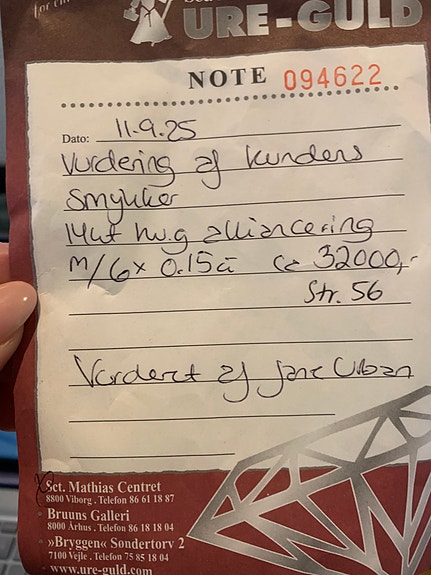 URE-GULD
NOTE 094622
Dato: 11.9.25
Vurdering af kunders
Smykker
14kt hv.g alliancering
m/6x 0.15 ca 32000,-
Str. 56
Vurderet af Jane
Sct. Mathias Centret
8800 Viborg . Telefon 86 61 18 87
Bruuns Galleri
8000 Århus . Telefon 86 18 18 04
»Bryggen« Søndertorv 2
7100 Vejle . Telefon 75 85 18 04
www.ure-guld.com